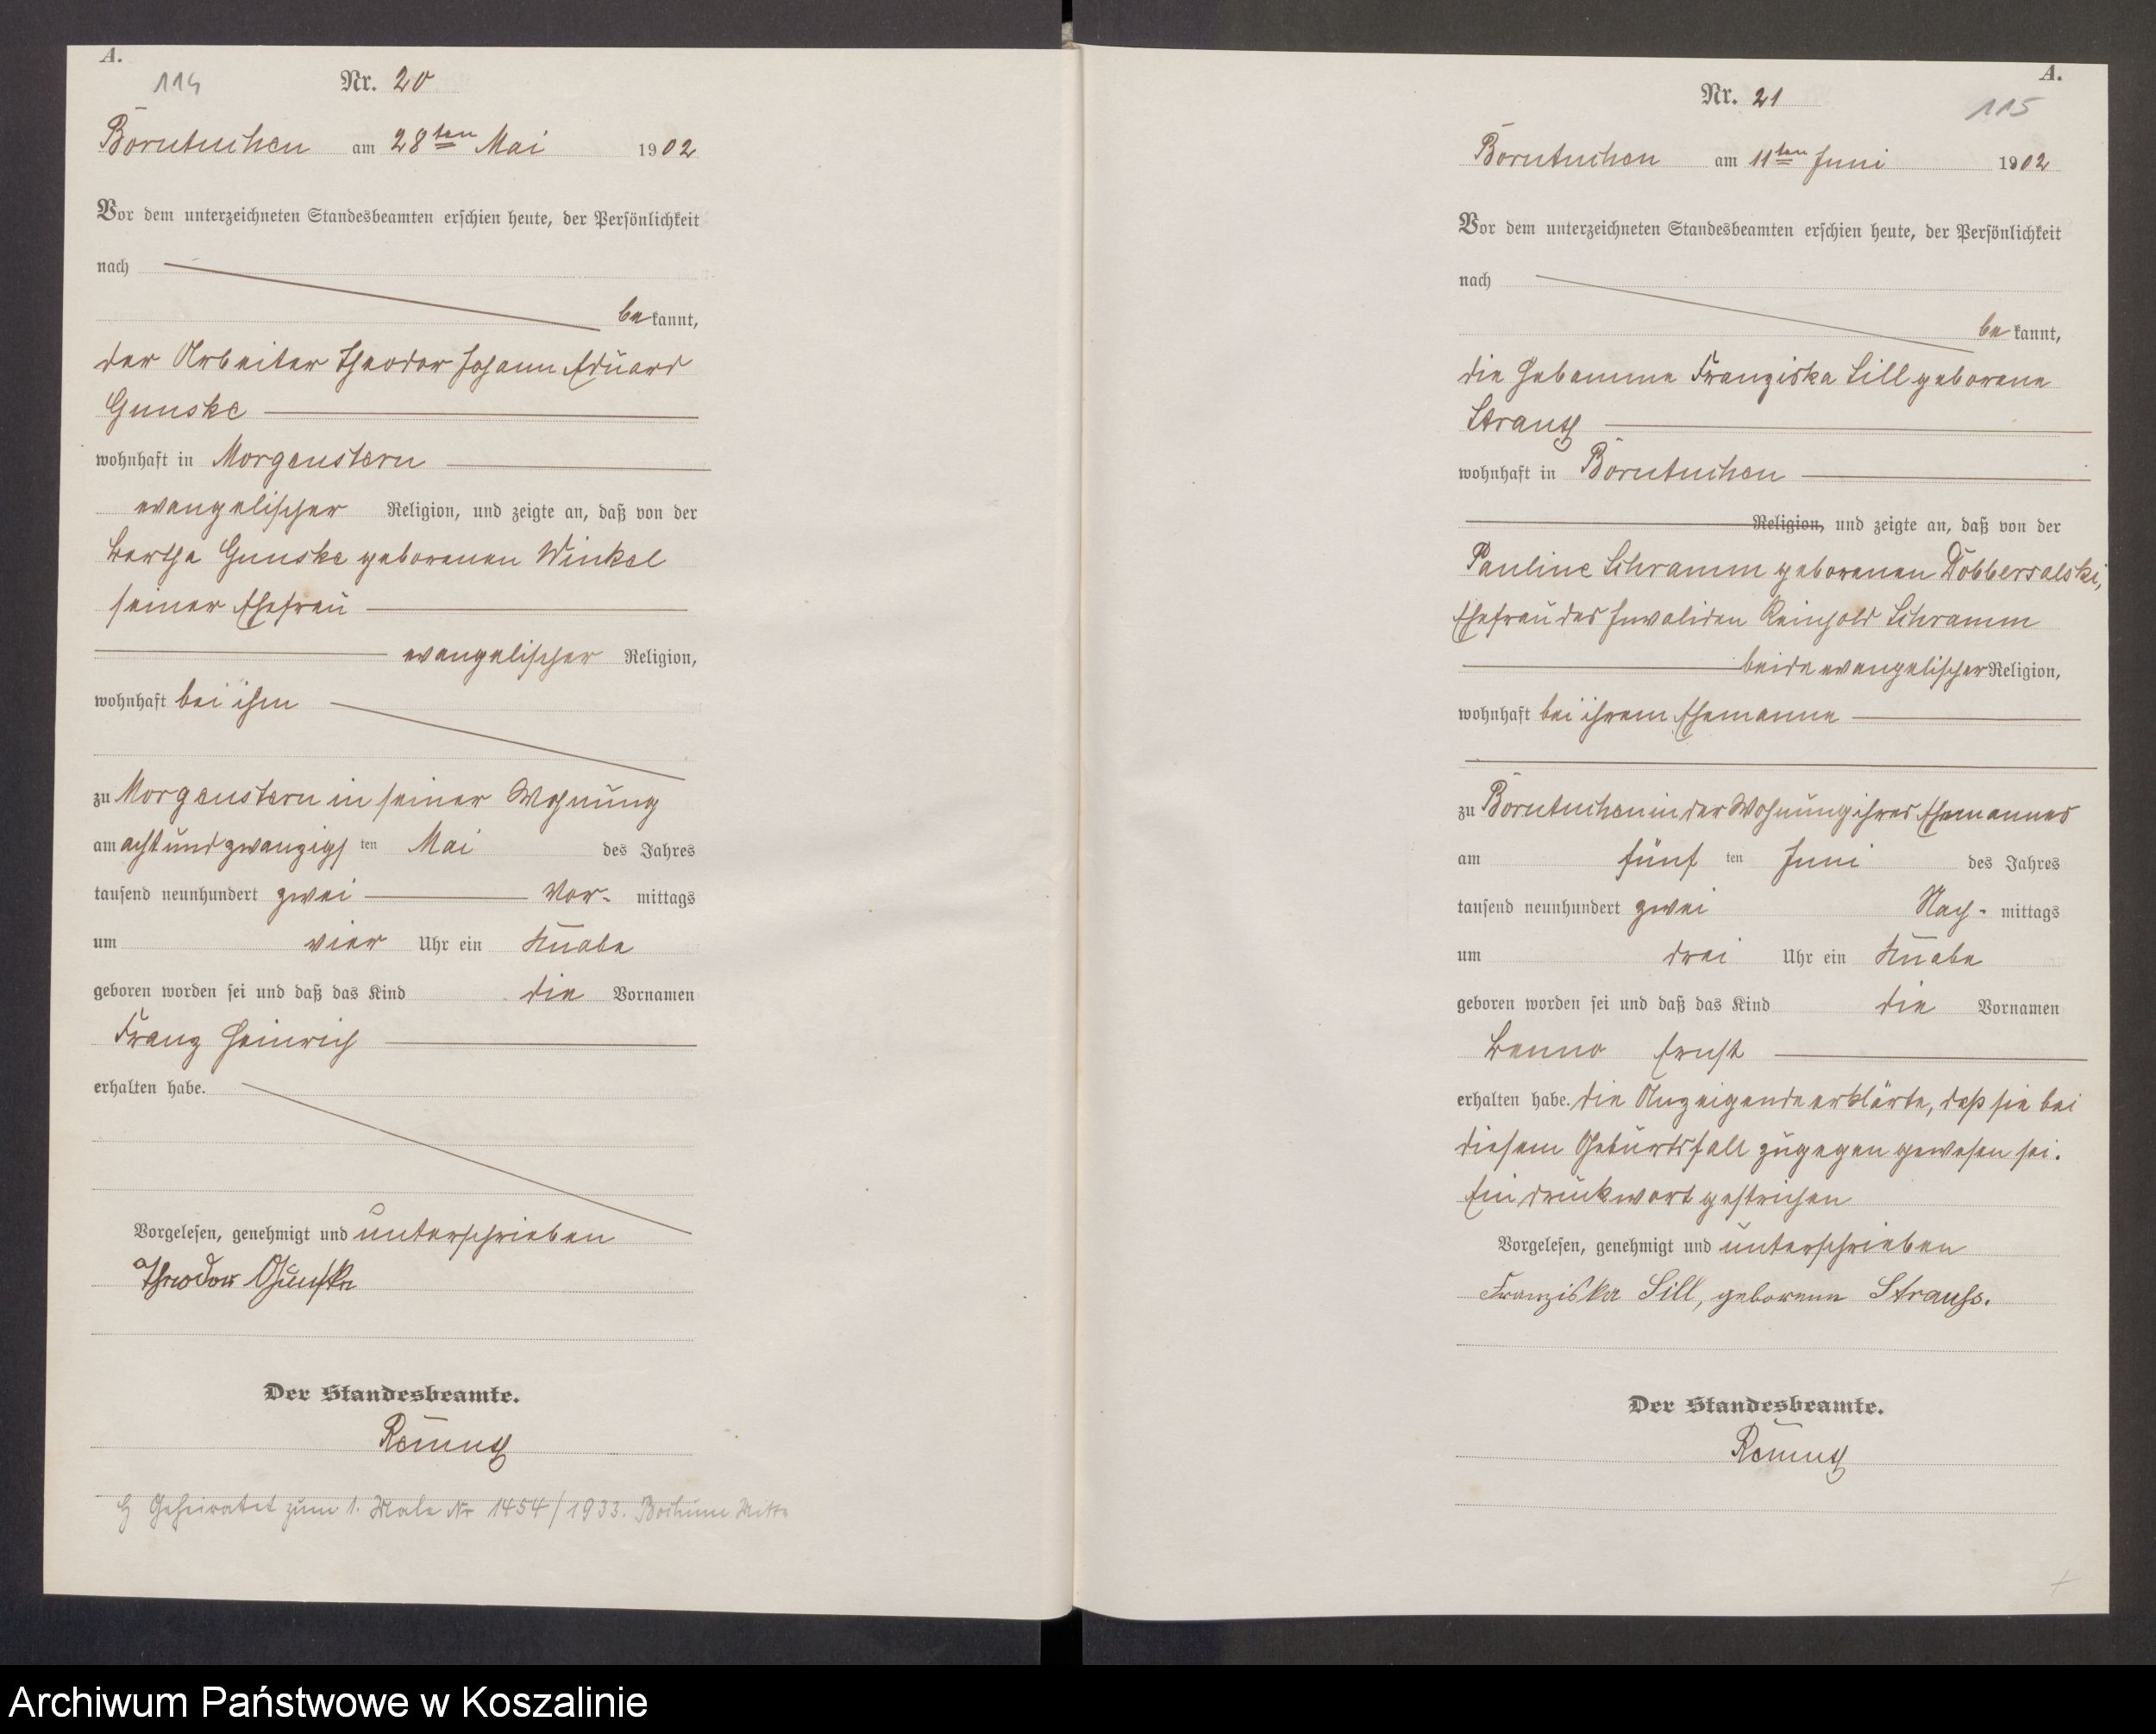 A.
114
Nr. 20
Borntuchen am 28ten Mai 1902
Vor dem unterzeichneten Standesbeamten erschien heute, der Persönlichkeit
nach
be kannt,
der Arbeiter Theodor Johann Eduard
Gunske
wohnhaft in Morgenstern
evangelischer Religion, und zeigte an, daß von der
Bertha Gunske geborenen Winkel
seiner Ehefrau
evangelischer Religion,
wohnhaft bei ihm
zu Morgenstern in seiner Wohnung
am achtundzwanzigs ten Mai des Jahres
tausend neunhundert zwei Vor- mittags
um vier Uhr ein Knabe
geboren worden sei und daß das Kind die Vornamen
Franz Heinrich
erhalten habe.
Vorgelesen, genehmigt und unterschrieben
Theodor Gunske
Der Standesbeamte.
Remus
Geheiratet zum 1. Male Nr 1454/1933. Bochum Mitte
A.
115
Nr. 21
Borntuchen am 11ten Juni 1902
Vor dem unterzeichneten Standesbeamten erschien heute, der Persönlichkeit
nach
be kannt,
die Hebamme Franziska Sill geborene
Strauß
wohnhaft in Borntuchen
Religion, und zeigte an, daß von der
Pauline Schramm geborenen Dobbersalski,
Ehefrau des Invaliden Reinhold Schramm
beide evangelischer Religion,
wohnhaft bei ihrem Ehemanne
zu Borntuchen in der Wohnung ihres Ehemannes
am fünf ten Juni des Jahres
tausend neunhundert zwei Nach- mittags
um drei Uhr ein Knabe
geboren worden sei und daß das Kind die Vornamen
Benno Ernst
erhalten habe. die Anzeigende erklärte, daß sie bei
diesem Geburtsfall zugegen gewesen sei.
Ein Druckwort gestrichen
Vorgelesen, genehmigt und unterschrieben
Franziska Sill, geborene Strauss.
Der Standesbeamte.
Remus
Archiwum Państwowe w Koszalinie